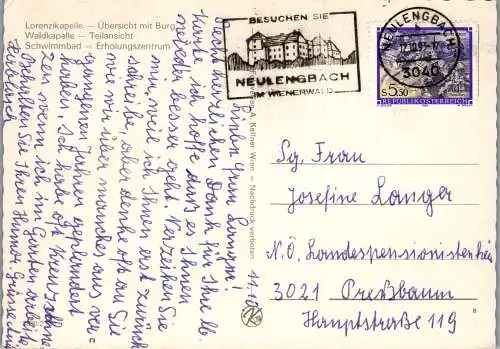 Lorenzikapelle – Übersicht mit Burg
Waldkapelle – Teilansicht
Schwimmbad – Erholungszentrum
BESUCHEN SIE
NEULENGBACH
IM WIENERWALD
NEULENGBACH
3040
S 5.50
REPUBLIK ÖSTERREICH
A. Kellner Wien – Nachdruck verboten
11.10.
Liebe Frau Langer!
Recht herzlichen Dank für Ihre lb.
Karte, ich hoffe daß es Ihnen
wieder besser geht. Verzeihen Sie
mir, weil ich Ihnen erst zurück
schreibe, aber denke oft an Sie
wir über manches aus ver-
gangenen Jahren geplaudert
haben. Ich habe oft Kreuz
wenn ich im Garten arbeite.
Behalten Sie Ihren Humor.
Herzlichst
Sg. Frau
Josefine Langer
N.Ö. Landespensionistenheim
3021 Preßbaum
Hauptstraße 119